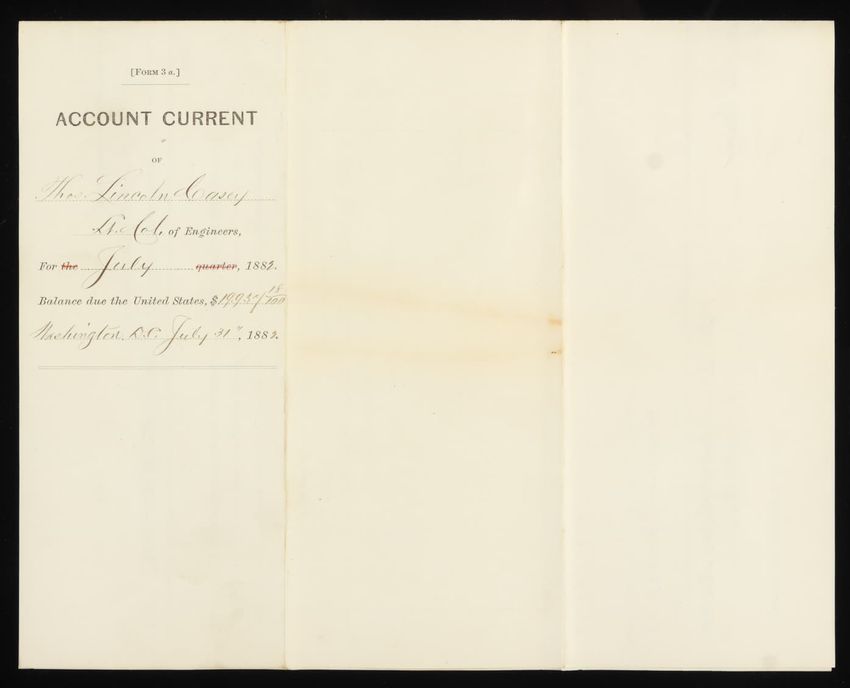 [FORM 3 a.]
ACCOUNT CURRENT
OF
Thos. Lincoln Casey
Lt. Col. of Engineers,
For the July quarter, 1882.
Balance due the United States, $
Washington, D.C. July 31", 1882.